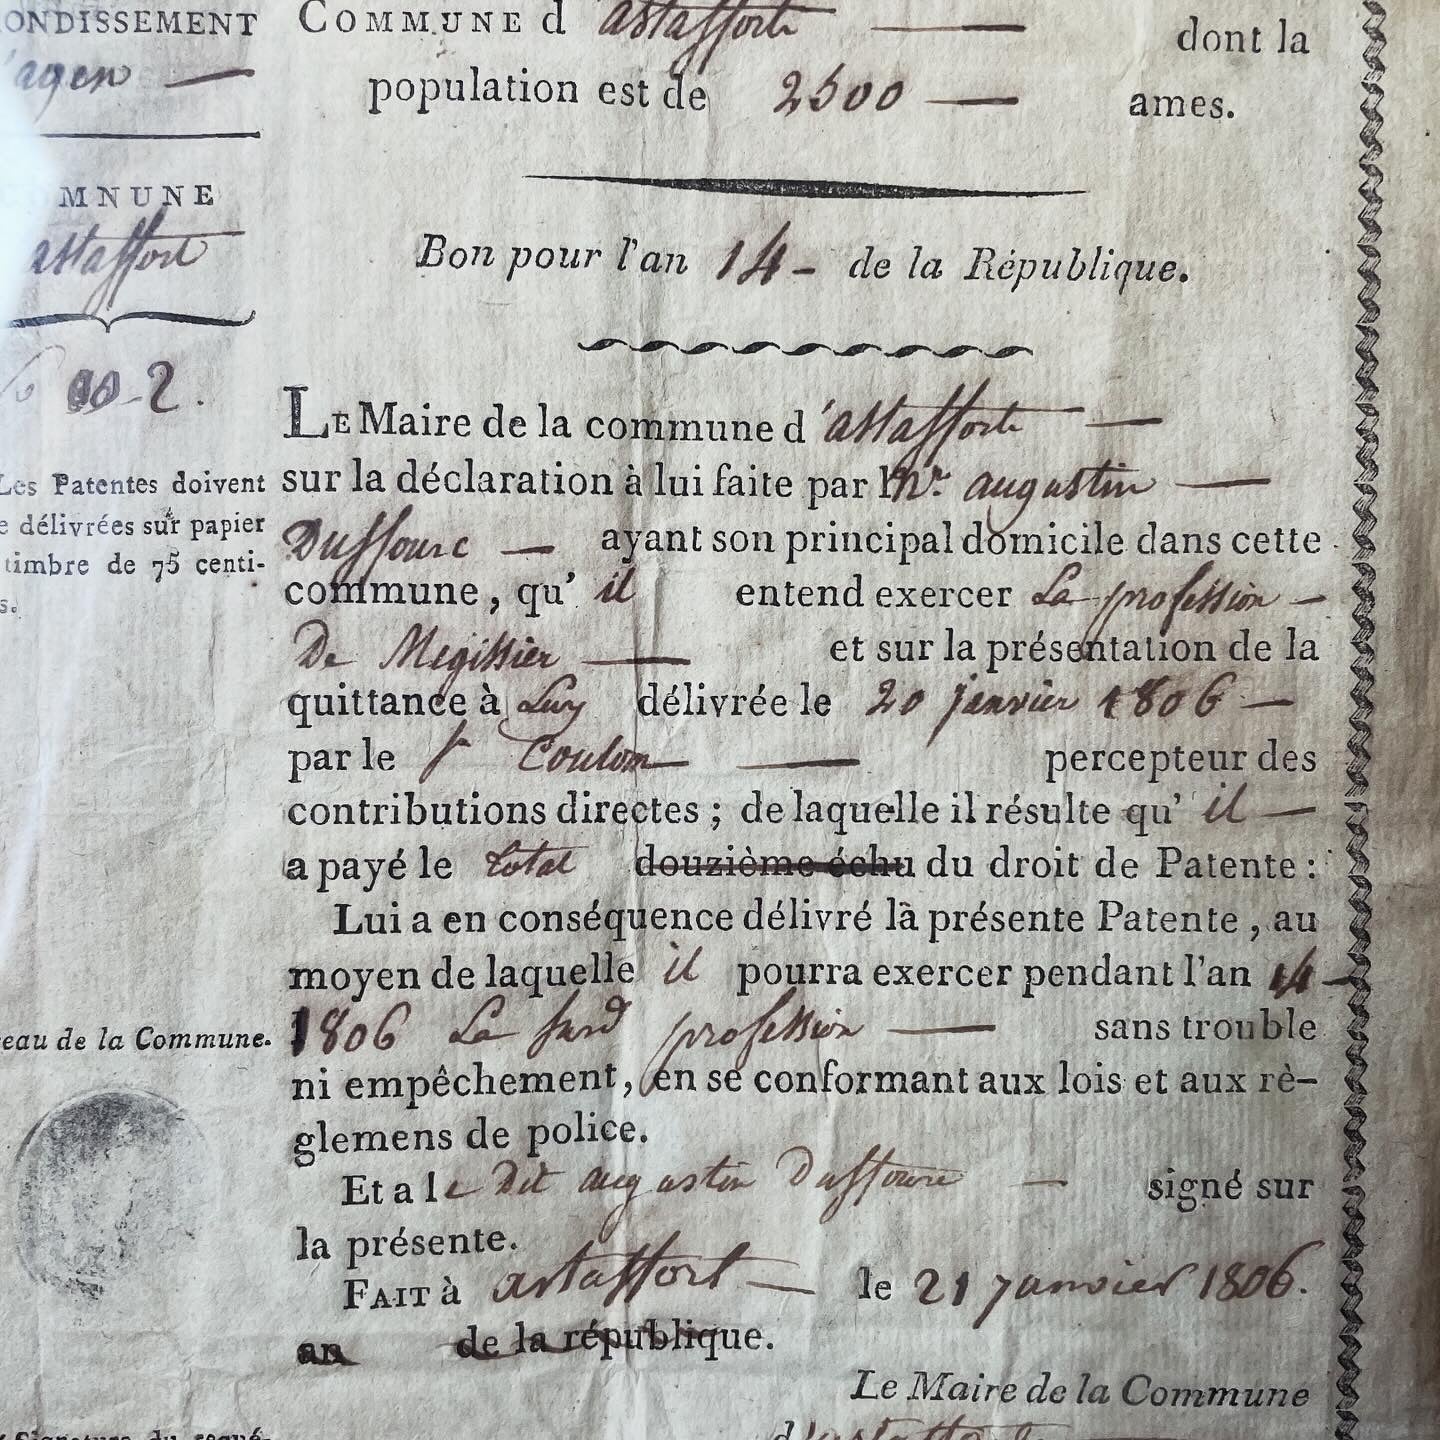 ONDISSEMENT
'agen —
OMNUNE
astaffort
2.
Les Patentes doivent
e délivrées sur papier
timbre de 75 centi-
s.
eau de la Commune.
Signature du requé-
COMMUNE d astafforte — dont la
population est de 2500 — ames.
Bon pour l'an 14 - de la République.
LE Maire de la commune d 'astafforte —
sur la déclaration à lui faite par Mr. augustin —
Duffourc — ayant son principal domicile dans cette
commune, qu' il entend exercer La profession —
De Megissier — et sur la présentation de la
quittance à Luy délivrée le 20 janvier 1806 —
par le Sr Coulom — percepteur des
contributions directes ; de laquelle il résulte qu' il —
a payé le total douzième échu du droit de Patente :
Lui a en conséquence délivré la présente Patente, au
moyen de laquelle il pourra exercer pendant l'an 14 —
1806 La profession — sans trouble
ni empêchement, en se conformant aux lois et aux rè-
glemens de police.
Et a le Dit augustin Duffourc — signé sur
la présente.
FAIT à astaffort — le 21 janvier 1806.
an de la république.
Le Maire de la Commune